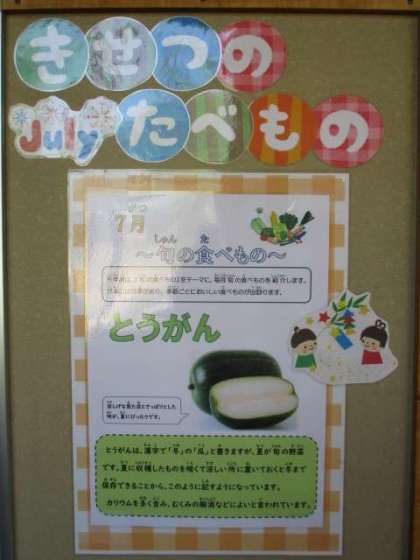 きせつの
July たべもの
7月
～旬の食べもの～
とうがん
とうがんは、漢字で「冬」の「瓜」と書きますが、夏が旬の野菜
です。夏に収穫したものを暗くて涼しい所に置いておくと冬まで
保存できることから、このように記すようになっています。
カリウムを多く含み、むくみの解消などによいと言われています。